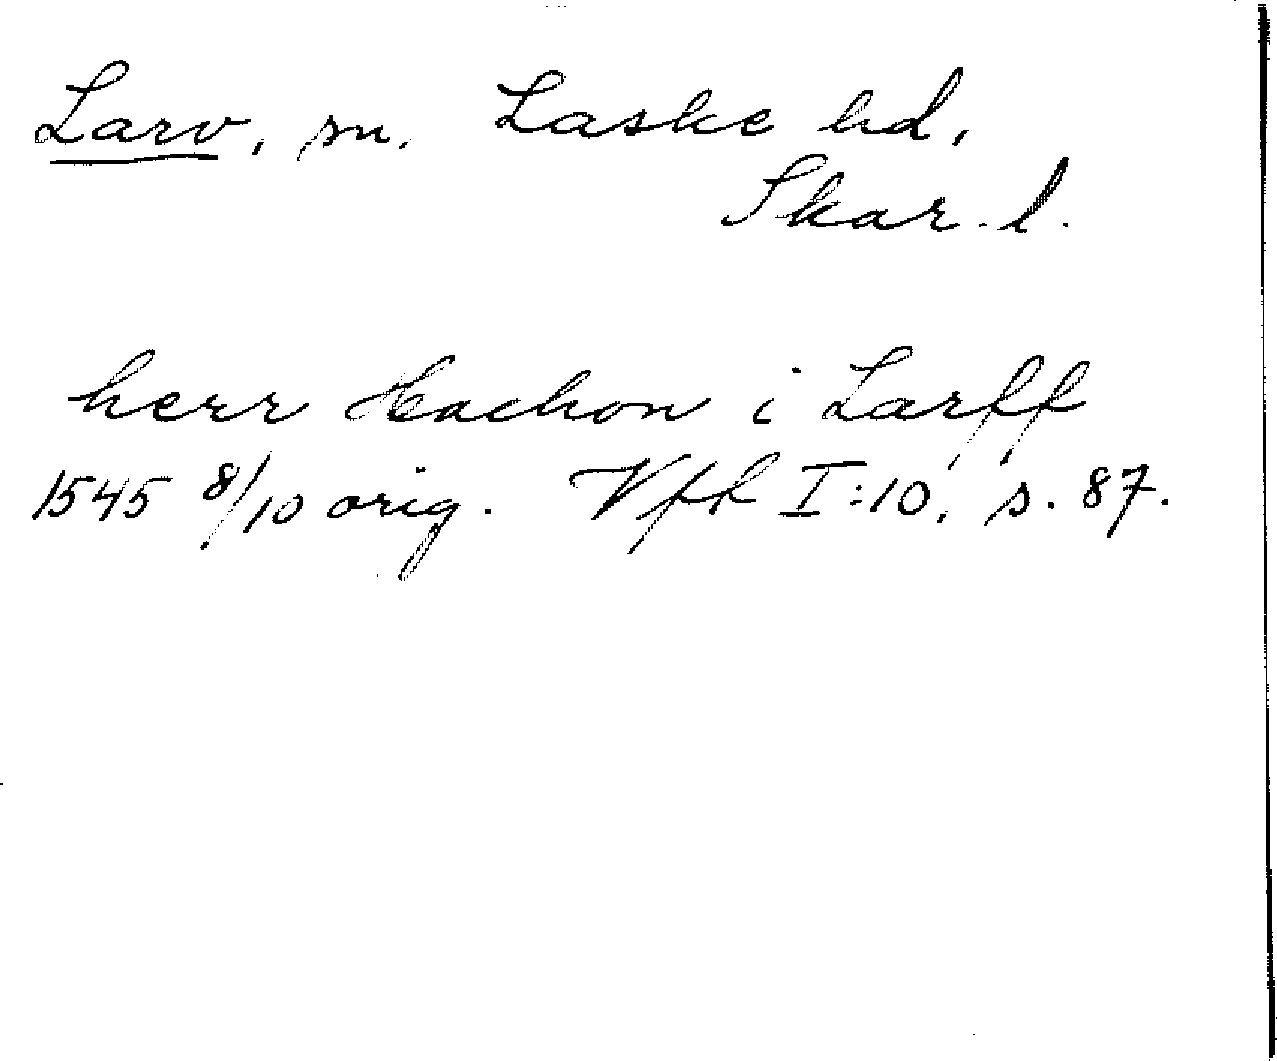 Larv, sn. Laske hd,
Skar. l.
herr Hachon i Larff
1545 8/10 orig. Vff I:10, s. 87.